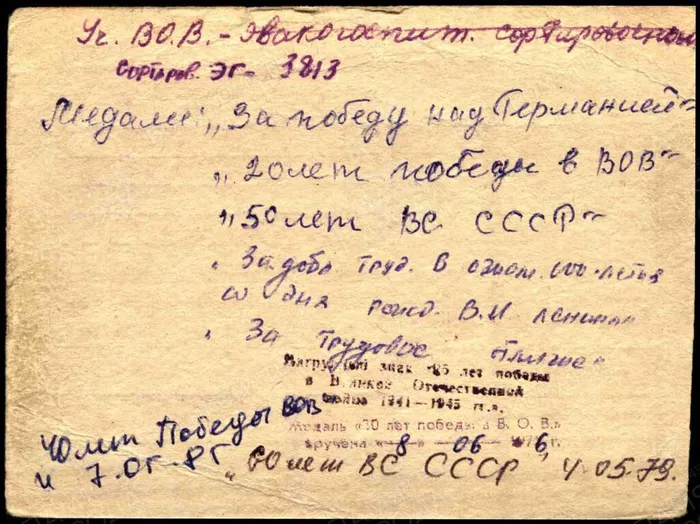 Уч. В.О.В. - Эвакогоспит. сортировочный
сортиров. ЭГ - 3813
Медали: „За победу над Германией"
„20 лет победы в ВОВ"
„50 лет ВС СССР"
„За добл труд. В ознам. 100-летия
со дня рожд. В.И ленина
„За трудовое отличие"
Нагрудный знак «25 лет победы
в Великой Отечественной
войне 1941—1945 гг.».
Медаль «30 лет победы в В. О. В.»
вручена «8» 06 1976 г.
40 лет Победы ВОВ
„60 лет ВС СССР" 4.05.79.